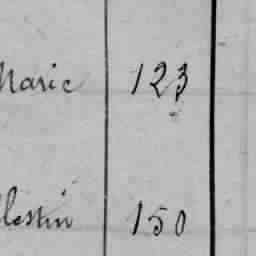 Marie 123
lestin 150